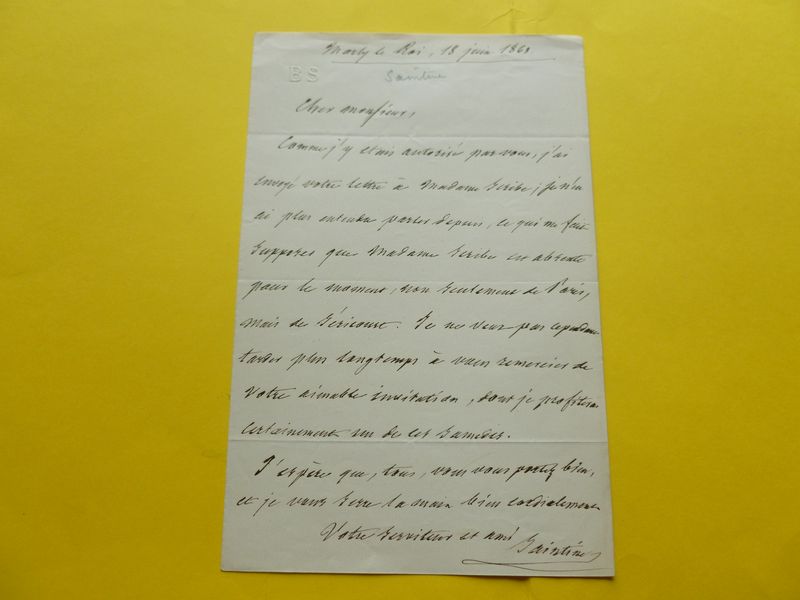 Marly le Roi, 18 juin 186
BS
Saintine
Cher monsieur,
Comme j'y etais autorisé par vous, j'ai
envoyé votre lettre à Madame Scribe; je n'en
ai plus entendu parler depuis, ce qui me fait
supposer que Madame Scribe est absente
pour le moment, non seulement de Paris,
mais de Séricourt. Je ne veux pas cependant
tarder plus longtemps à vous remercier de
votre aimable invitation, dont je profiterai
certainement un de ces Samedis.
J'espère que, tous, vous vous portez bien,
et je vous serre la main bien cordialement
Votre serviteur et ami
Saintine